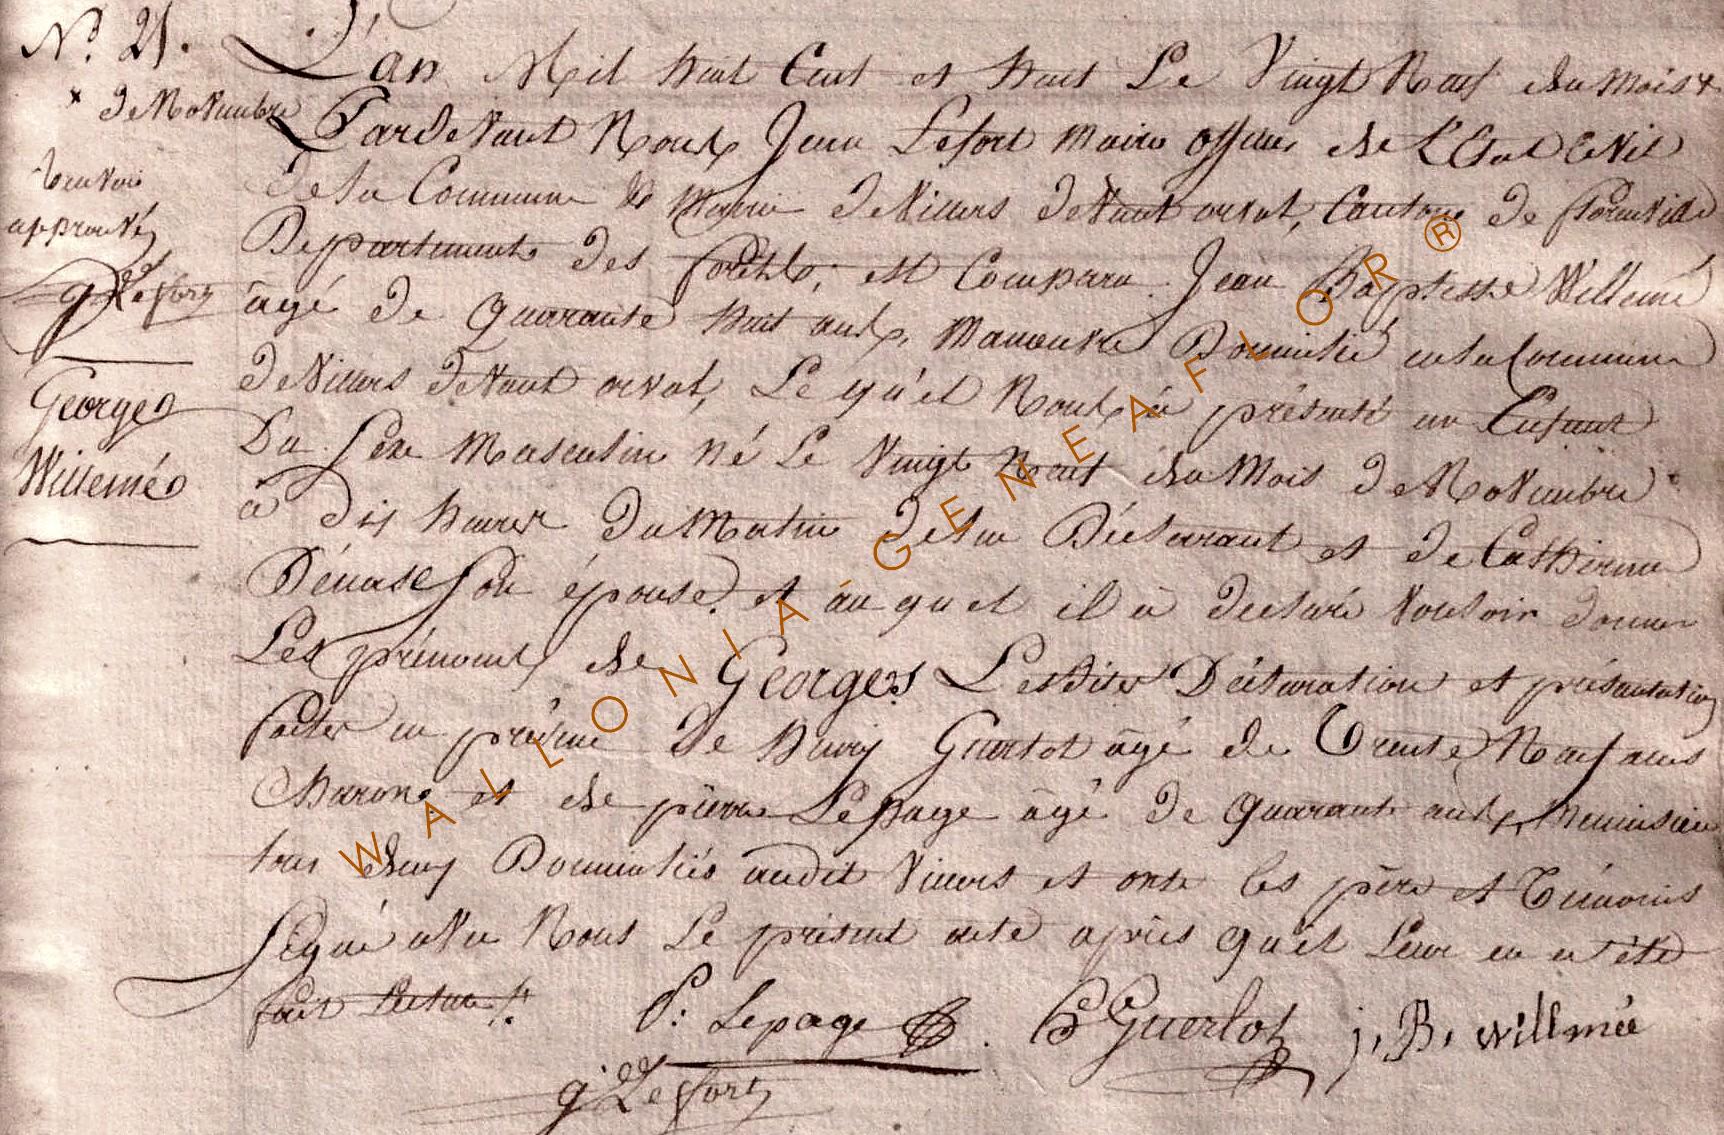 N.° 21.
x de Novembre
renvoi
approuvé
J Lefort
Georges
Willemé
L'an Mil huit Cent et huit Le Vingt Neuf du Mois x
Pardevant Nous Jean Lefort Maire officier de L'Etat Civil
de la Commune & Mairie de Villers devant orval, Canton de florenville
Departement des forêts, est Comparu Jean Baptiste Willemé
âgé de quarante huit ans, Manouvre Domicilié en la Commune
de Villers devant orval, Le qu'el Nous à présenté un Enfant
Du Sexe Masculin Né Le Vingt Neuf du Mois de Novembre
à dix heures du Matin de lui Déclarant et de Catherine
Son épouse, et au quel il à declaré Vouloir donner
Les prénoms de Georges Lesdites Déclaration et présentation
faites en présence De henry Guerlot âgé de Trente Neuf ans
Charon et de pierre Lepage âgé de quarante ans, Menuisier
tous deux Domiciliés audit Villers et onts les père et Témoins
Signé avec Nous Le présent acte après qu'il Leur en a été
fait Lecture //.
P: Lepage
Guerlot
j. B. willmée
J Lefort
WALLONIA GENEAFLOR ®